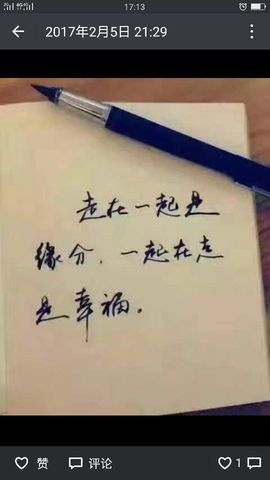 17:13
2017年2月5日 21:29
走在一起是
缘分，一起在走
是幸福。
赞
评论
1